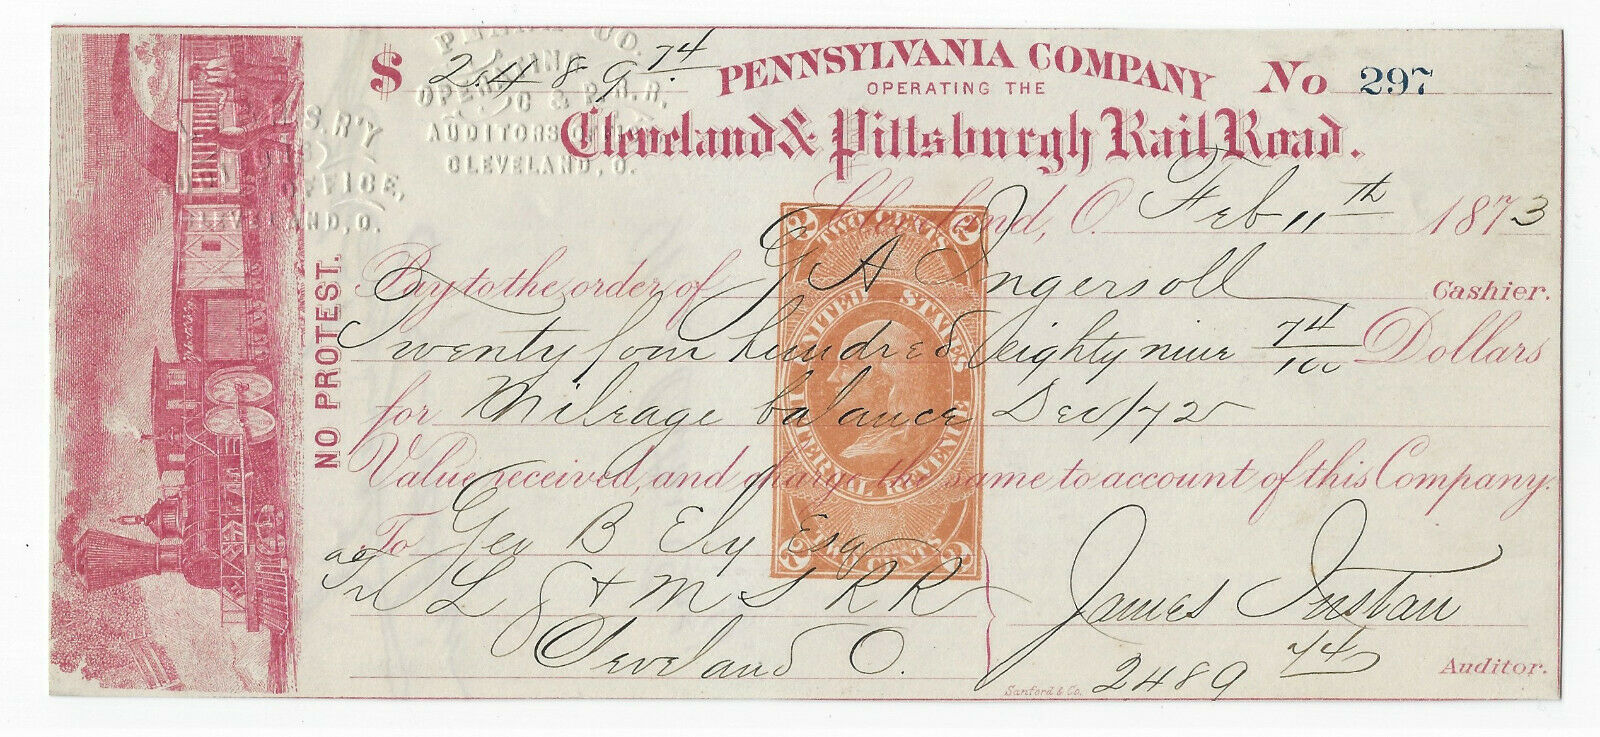 $ 2489.74 PENNSYLVANIA COMPANY No 297
OPERATING THE
Cleveland & Pittsburgh Rail Road.
Cleveland, O. Feb 11th 1873
Pay to the order of G A Ingersoll Cashier.
Twenty four hundred Eighty nine 74/100 Dollars
for Mileage balance Dec/72
Value received, and charge the same to account of this Company.
To Geo B Ely Esq
L S & M S RR
Cleveland O.
James
2489 74
Auditor.
Sanford & Co.
NO PROTEST.
PENNA CO.
OPERATING
C & P. R. R.
AUDITORS OFFICE
CLEVELAND, O.
S. R'Y
OFFICE,
CLEVELAND, O.
2 TWO CENTS 2
UNITED STATES
INTERNAL REVENUE
2 TWO CENTS 2